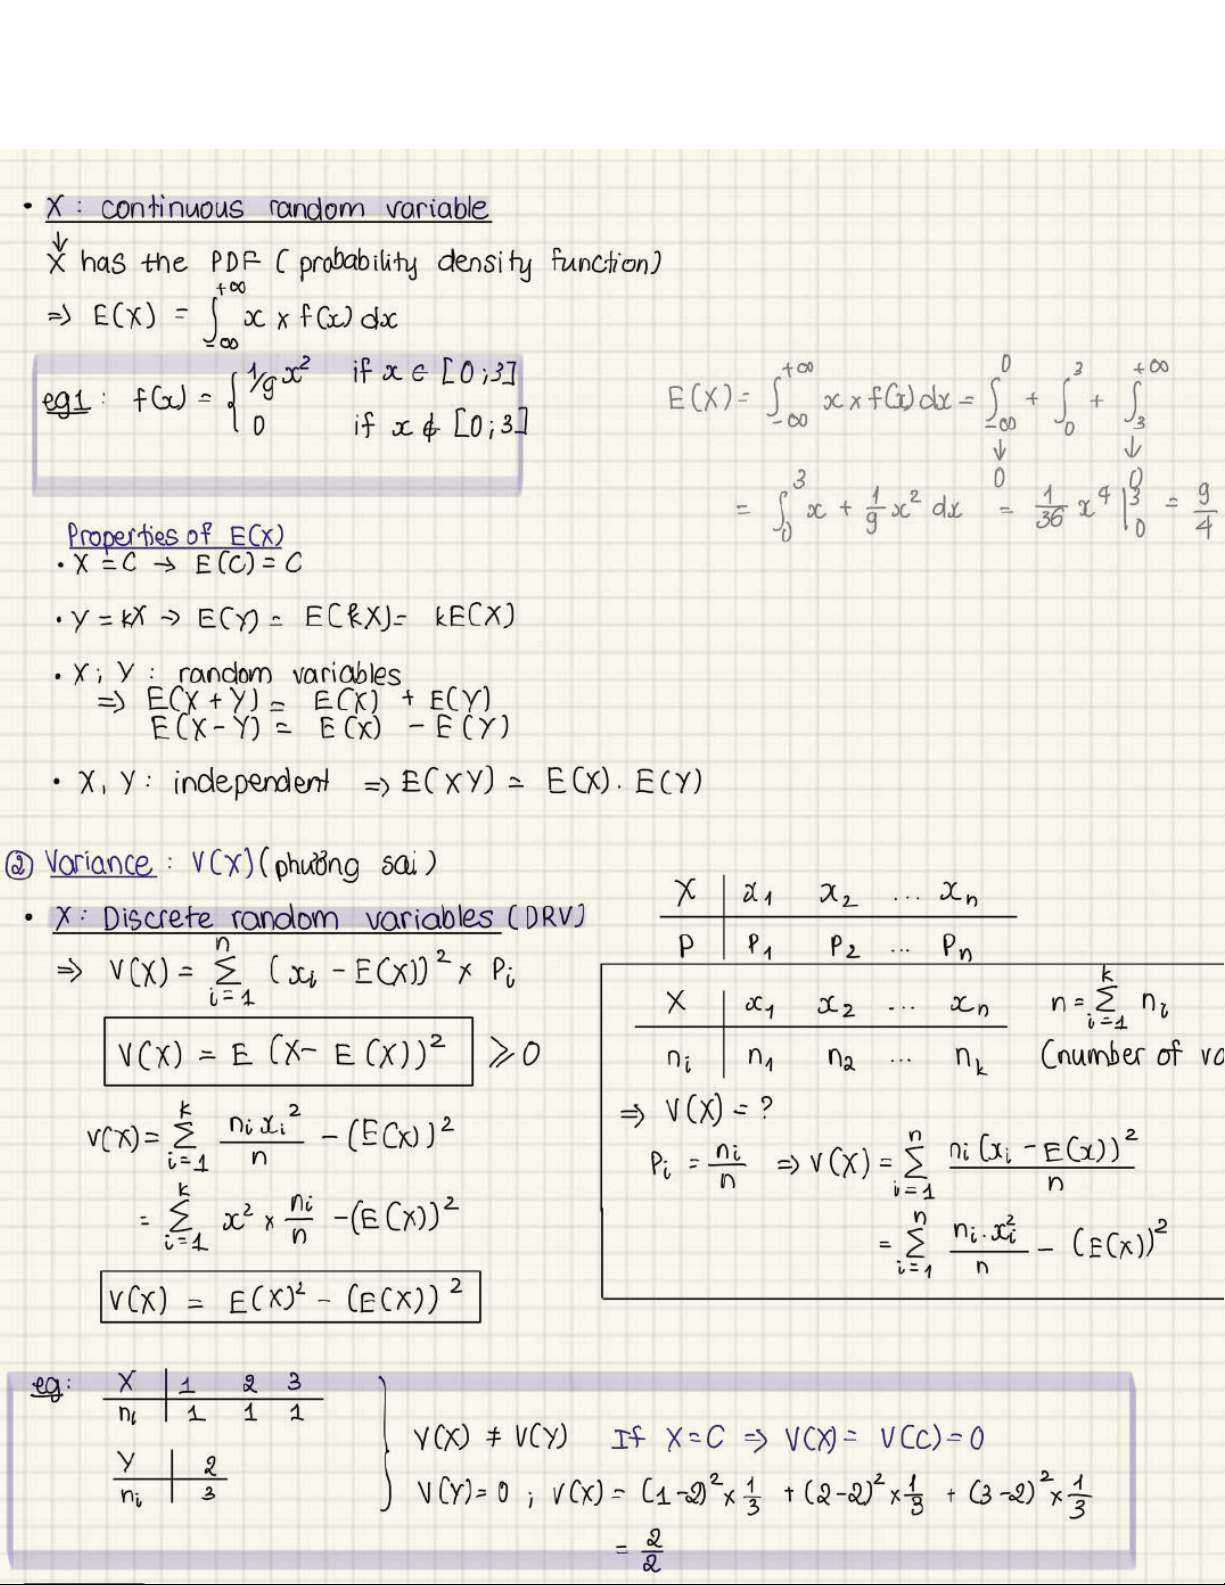 • X : continuous random variable
↓
X has the PDF ( probability density function)
⇒ E(X) = ∫_{-∞}^{+∞} x × f(x) dx
eg1 : f(x) = { 1/9 x² if x ∈ [0;3]
0 if x ∉ [0;3]
E(X) = ∫_{-∞}^{+∞} x × f(x) dx = ∫_{-∞}^{0} + ∫_{0}^{3} + ∫_{3}^{+∞}
↓ ↓
0 0
= ∫_{0}^{3} x + 1/9 x² dx = 1/36 x⁴ |_{0}^{3} = 9/4
Properties of E(X)
• X = C → E(C) = C
• Y = kX → E(Y) = E(kX) = kE(X)
• X ; Y : random variables
⇒ E(X + Y) = E(X) + E(Y)
E(X - Y) = E(X) - E(Y)
• X, Y : independent ⇒ E(XY) = E(X) . E(Y)
② Variance : V(X) (phương sai)
• X : Discrete random variables (DRV)
⇒ V(X) = Σ_{i=1}^{n} (x_i - E(X))² × P_i
V(X) = E (X - E(X))² ⩾ 0
V(X) = Σ_{i=1}^{k} n_i x_i² / n - (E(X))²
= Σ_{i=1}^{k} x² × n_i/n - (E(X))²
V(X) = E(X)² - (E(X))²
X | x₁ x₂ ... x_n
P | P₁ P₂ ... P_n
X | x₁ x₂ ... x_n n = Σ_{i=1}^{k} n_i
n_i | n₁ n₂ ... n_k (number of va
⇒ V(X) = ?
P_i = n_i/n ⇒ V(X) = Σ_{i=1}^{n} n_i (x_i - E(x))² / n
= Σ_{i=1}^{n} n_i . x_i² / n - (E(X))²
eg: X | 1 2 3
n_i | 1 1 1
Y | 2
n_i | 3
V(X) ≠ V(Y) If X = C ⇒ V(X) = V(C) = 0
V(Y) = 0 ; V(X) = (1-2)² × 1/3 + (2-2)² × 1/3 + (3-2)² × 1/3
= 2/2